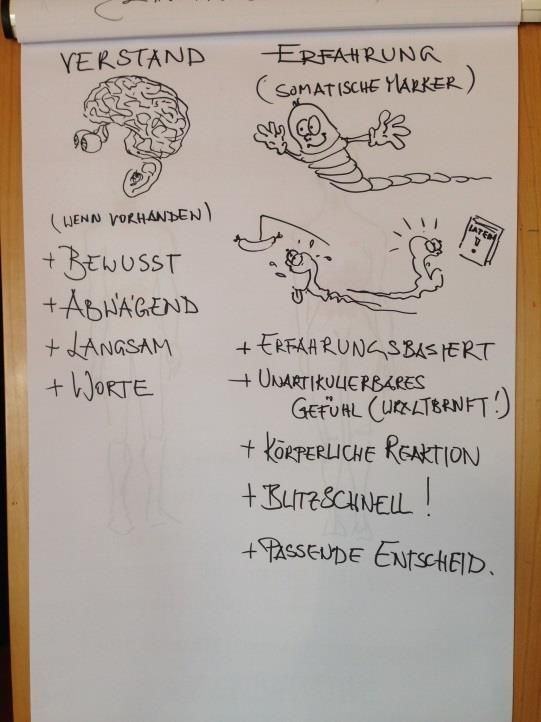 VERSTAND
(WENN VORHANDEN)
+ BEWUSST
+ ABWÄGEND
+ LANGSAM
+ WORTE
ERFAHRUNG
(SOMATISCHE MARKER)
LATEIN
!!
+ ERFAHRUNGSBASIERT
+ UNARTIKULIERBARES
GEFÜHL (URXLTBRNFT!)
+ KÖRPERLICHE REAKTION
+ BLITZSCHNELL!
+ PASSENDE ENTSCHEID.